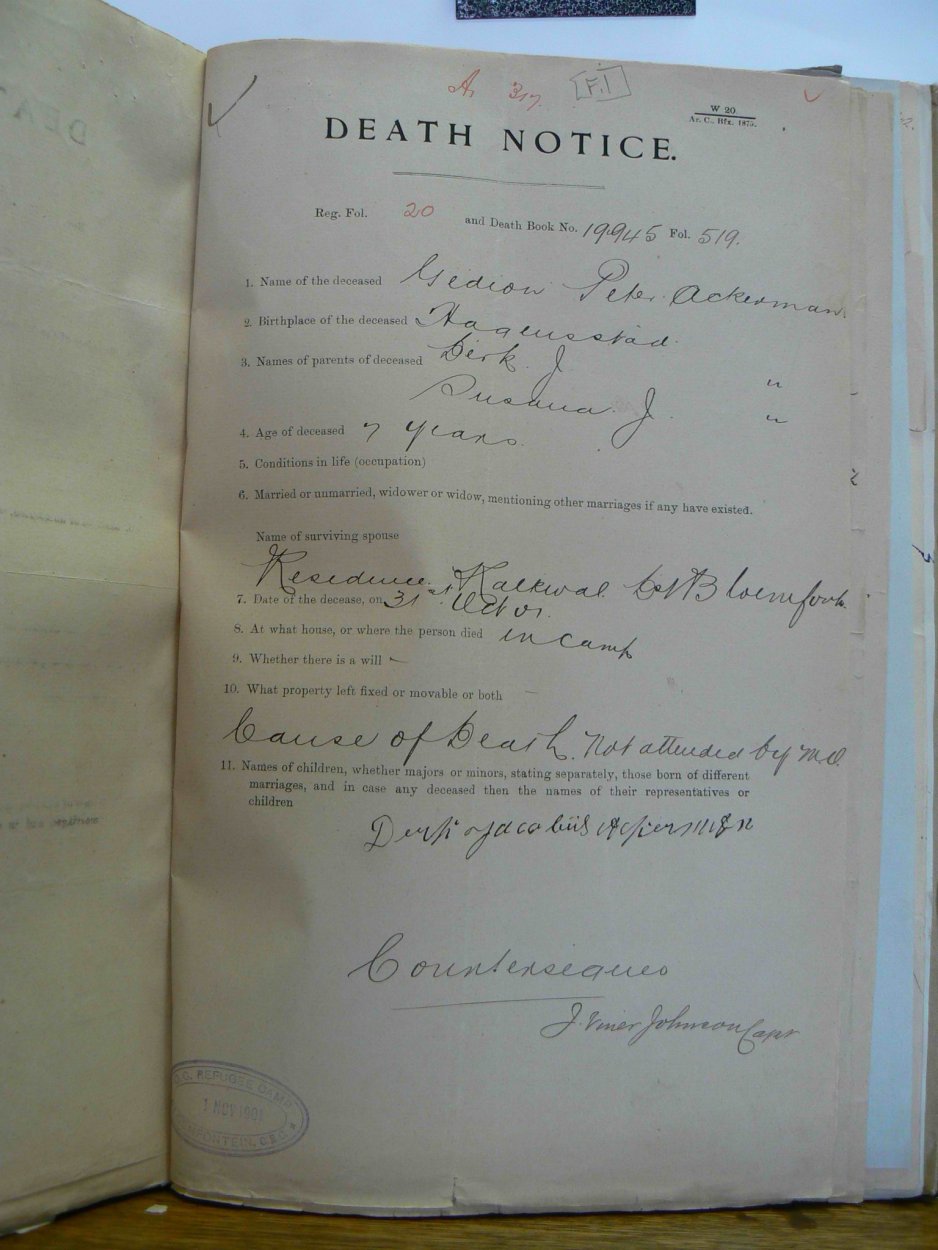 A. 317 F.1
W 20
Ar. C., Bfn. 1875.
DEATH NOTICE.
Reg. Fol. 20 and Death Book No. 19945 Fol. 519.
1. Name of the deceased Gideon Peter Ackerman
2. Birthplace of the deceased Hagensstad
3. Names of parents of deceased Derk J "
Susana J. "
4. Age of deceased 7 years.
5. Conditions in life (occupation)
6. Married or unmarried, widower or widow, mentioning other marriages if any have existed.
Name of surviving spouse
Residence Kalkwal Dst Bloemfont
7. Date of the decease, on 31st Oct 01.
8. At what house, or where the person died in camp
9. Whether there is a will -
10. What property left fixed or movable or both —
Cause of Death. Not attended by M.O.
11. Names of children, whether majors or minors, stating separately, those born of different
marriages, and in case any deceased then the names of their representatives or
children
Derk Jacobus Ackerman
J. Viner Johnson Capt
REFUGEE CAMP
1 NOV 1901